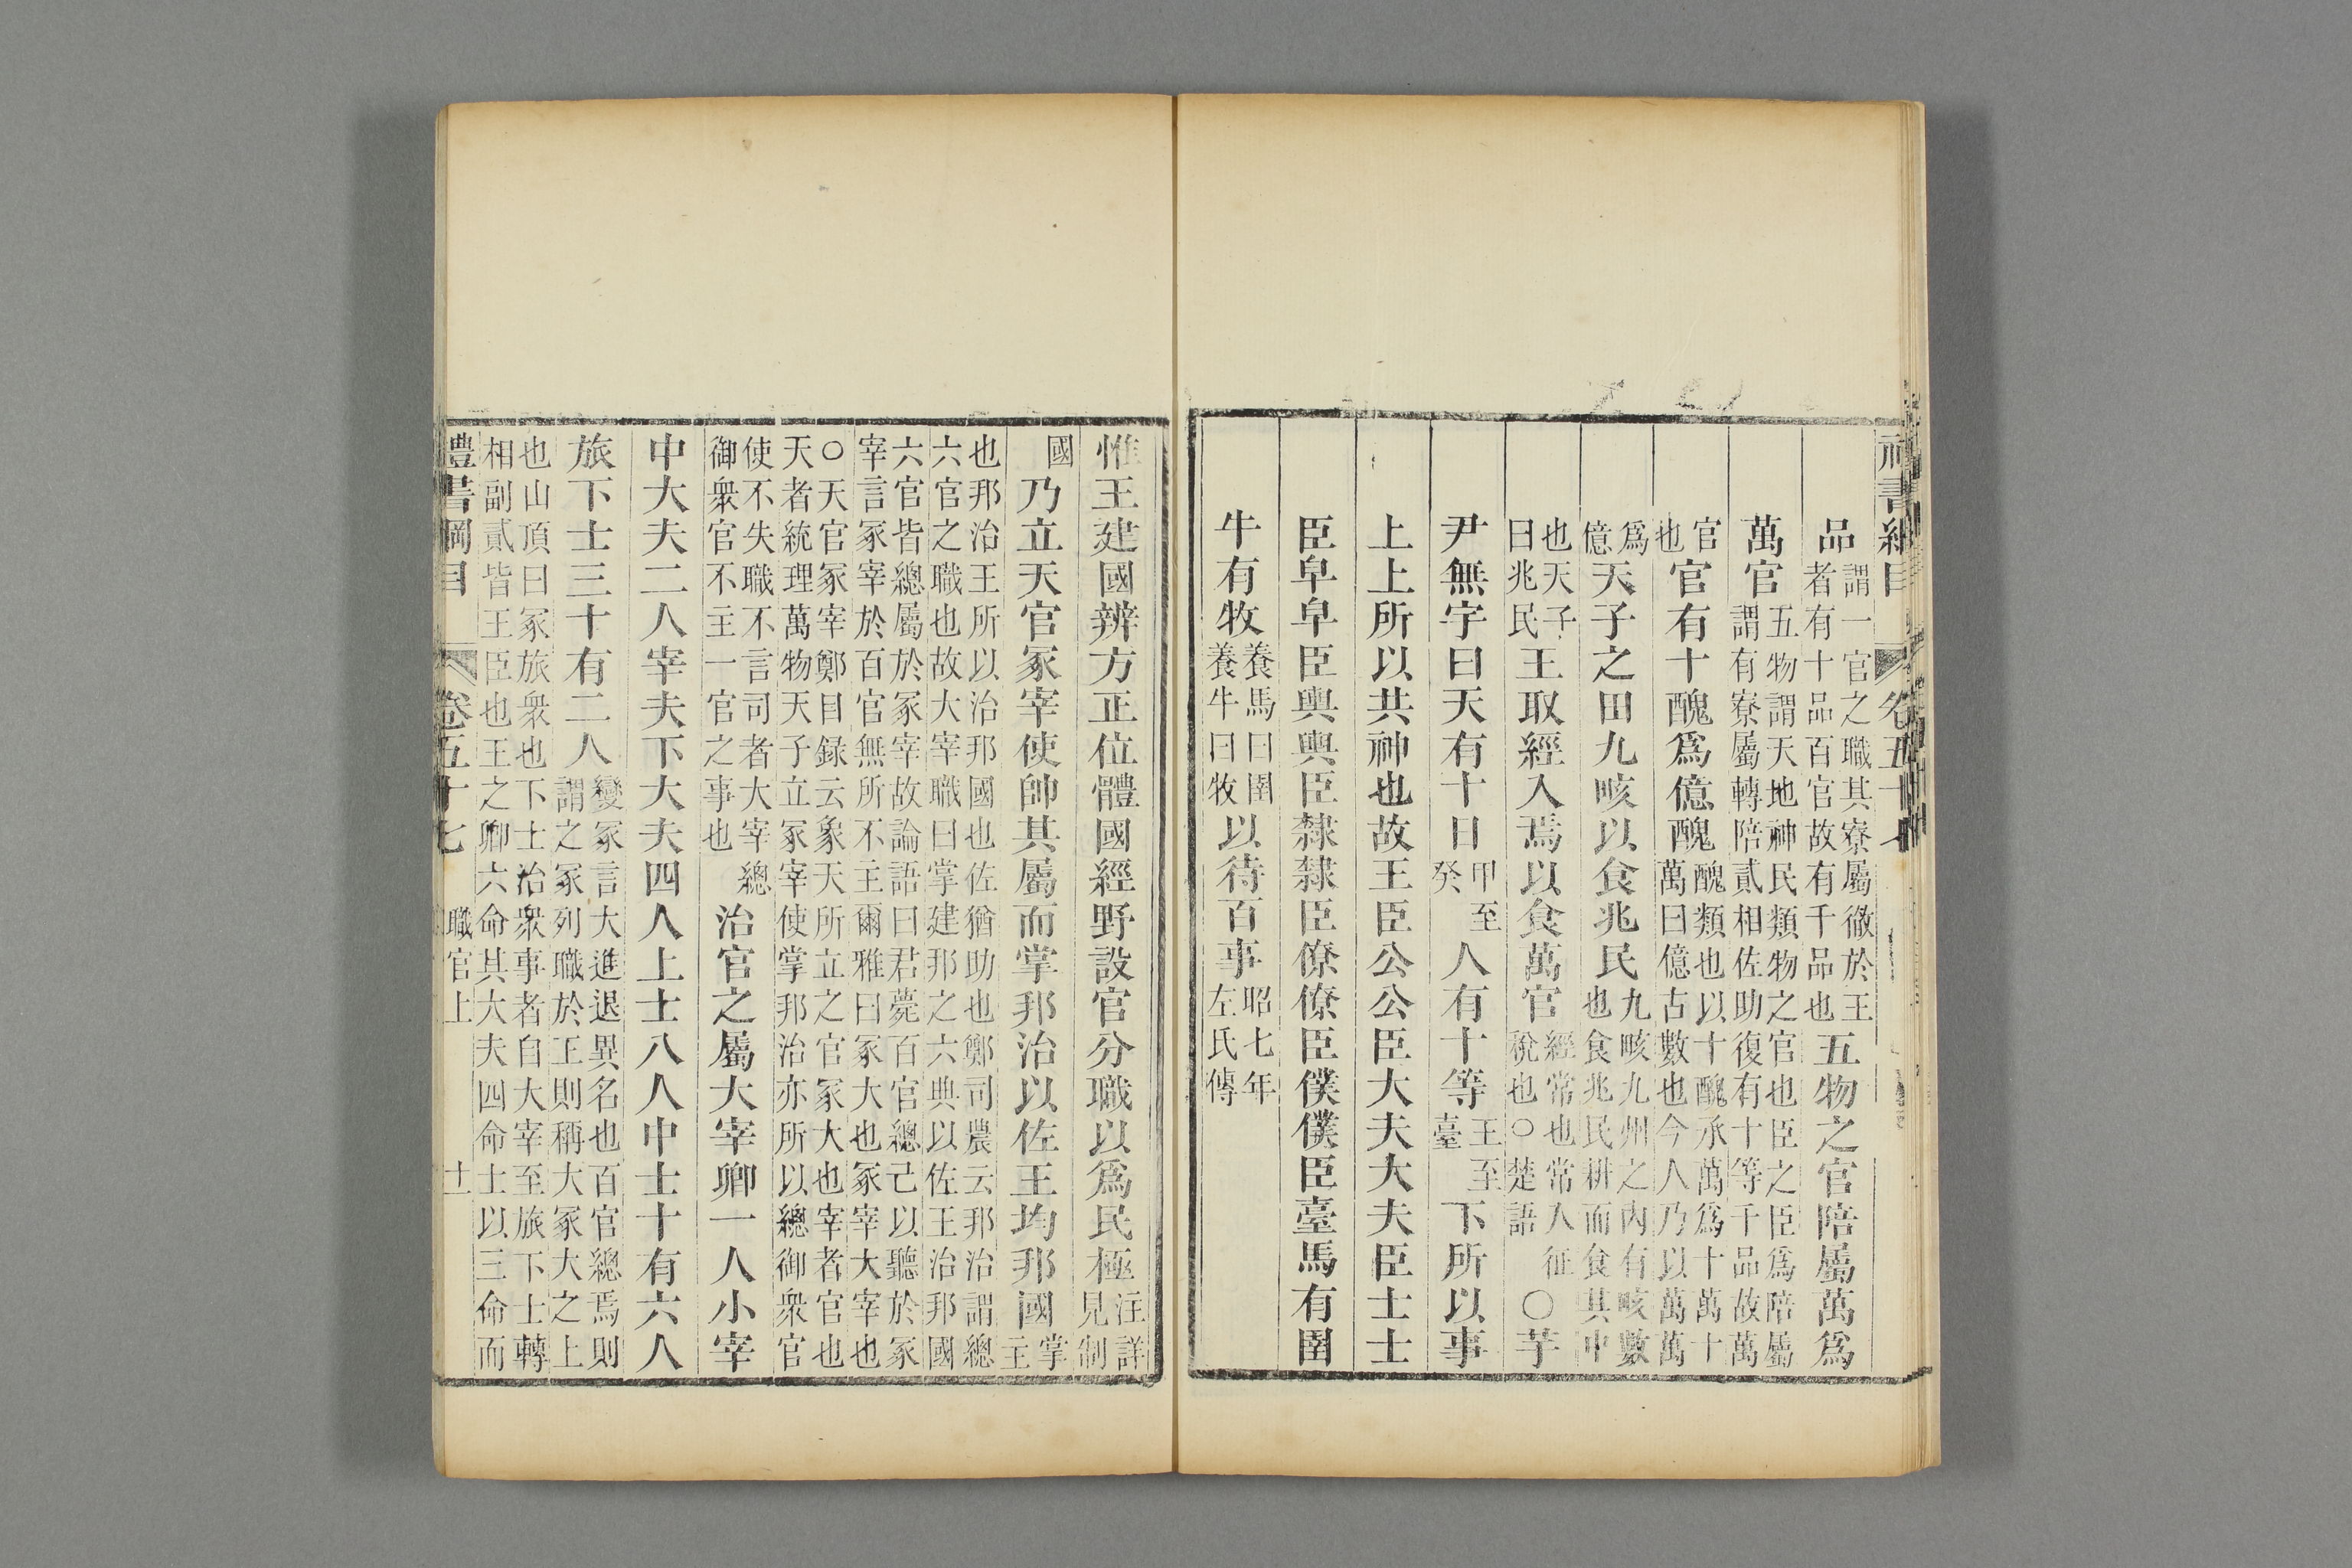 品謂一官之職其寮屬徹於王者有十品百官故有千品也五物之官陪屬萬爲
萬官五物謂天地神民類物之官也臣之臣爲陪屬謂有寮屬轉陪貳相佐助復有十等千品故萬
官也官有十醜爲億醜醜類也以十醜承萬爲十萬十萬曰億古數也今人乃以萬萬
爲億天子之田九畡以食兆民九畡九州之内有畡數也食兆民耕而食其中
也天子曰兆民王取經入焉以食萬官經常也常入征稅也○楚語○芋
尹無宇曰天有十日甲至癸人有十等王至臺下所以事
上上所以共神也故王臣公公臣大夫大夫臣士士
臣皁皁臣輿輿臣隸隸臣僚僚臣僕僕臣臺馬有圉
牛有牧養馬曰圉養牛曰牧以待百事昭七年左氏傳
惟王建國辨方正位體國經野設官分職以爲民極注詳見制
國乃立天官冢宰使帥其屬而掌邦治以佐王均邦國掌主
也邦治王所以治邦國也佐猶助也鄭司農云邦治謂總六官之職也故大宰職曰掌建邦之六典以佐王治邦國
六官皆總屬於冢宰故論語曰君薨百官總己以聽於冢宰言冢宰於百官無所不主爾雅曰冢大也冢宰大宰也
○天官冢宰鄭目録云象天所立之官冢大也宰者官也天者統理萬物天子立冢宰使掌邦治亦所以總御衆官
使不失職不言司者大宰總御衆官不主一官之事也治官之屬大宰卿一人小宰
中大夫二人宰夫下大夫四人上士八人中士十有六人
旅下士三十有二人變冢言大進退異名也百官總焉則謂之冢列職於王則稱大冢大之上
也山頂曰冢旅衆也下士治衆事者自大宰至旅下士轉相副貳皆王臣也王之卿六命其大夫四命士以三命而
禮書綱目 卷五十七 職官上 十一